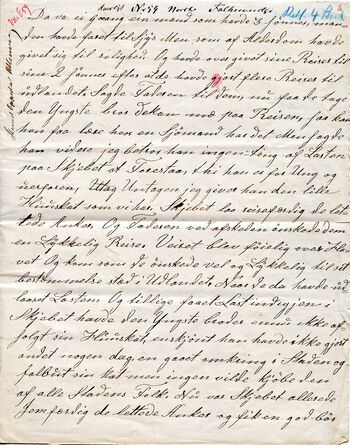 Da va ei gaang ein mand som havde 3 sönner, man
den havde faret til sjøs Men som af Alderdom havde
givet sig til rolighed. Og havde over givet sine Reiser til
sine 2 sönner efter at de havde gjort flere Reiser til
udlandet, Sagde Faderen til dem, nu faa de tage
den Yngste bror dekan med paa Reisen, for kan
han fra lære hvor en Sjömand har det Men sagde
han vidare jeg betror han ingenting af Lasten
paa Skjebet at Forestaa, thi han er for Ung og
uerforen, Utag Untagen jeg giver han den lille
Huuskat som vi har. Skjebet laa reisefærdig de let
tede Anker. Og Faderen ved afskeden önskede dem
en Lykkelig Reise. Veiret blev föielig over Ha
vet Og kom som de önskede vel og Lykkelig til sit
bestemmelse sted i Udlandet, Naar de da havde ud
losset Lasten. Og tillige faaet Last indigjen i
Skjebet havde den Yngste broder ennu ikke af
folgt sin Huuskat, enskjönt han havde ikke gjort
andet nogen dag, en gaaet omkring i Staden og
falbudt sin kat men ingen vilde kjöbe den
af alle Stadens Folk. Nu var Skjebet allerede
Semfærdig de lettede Anker og fik en god bör